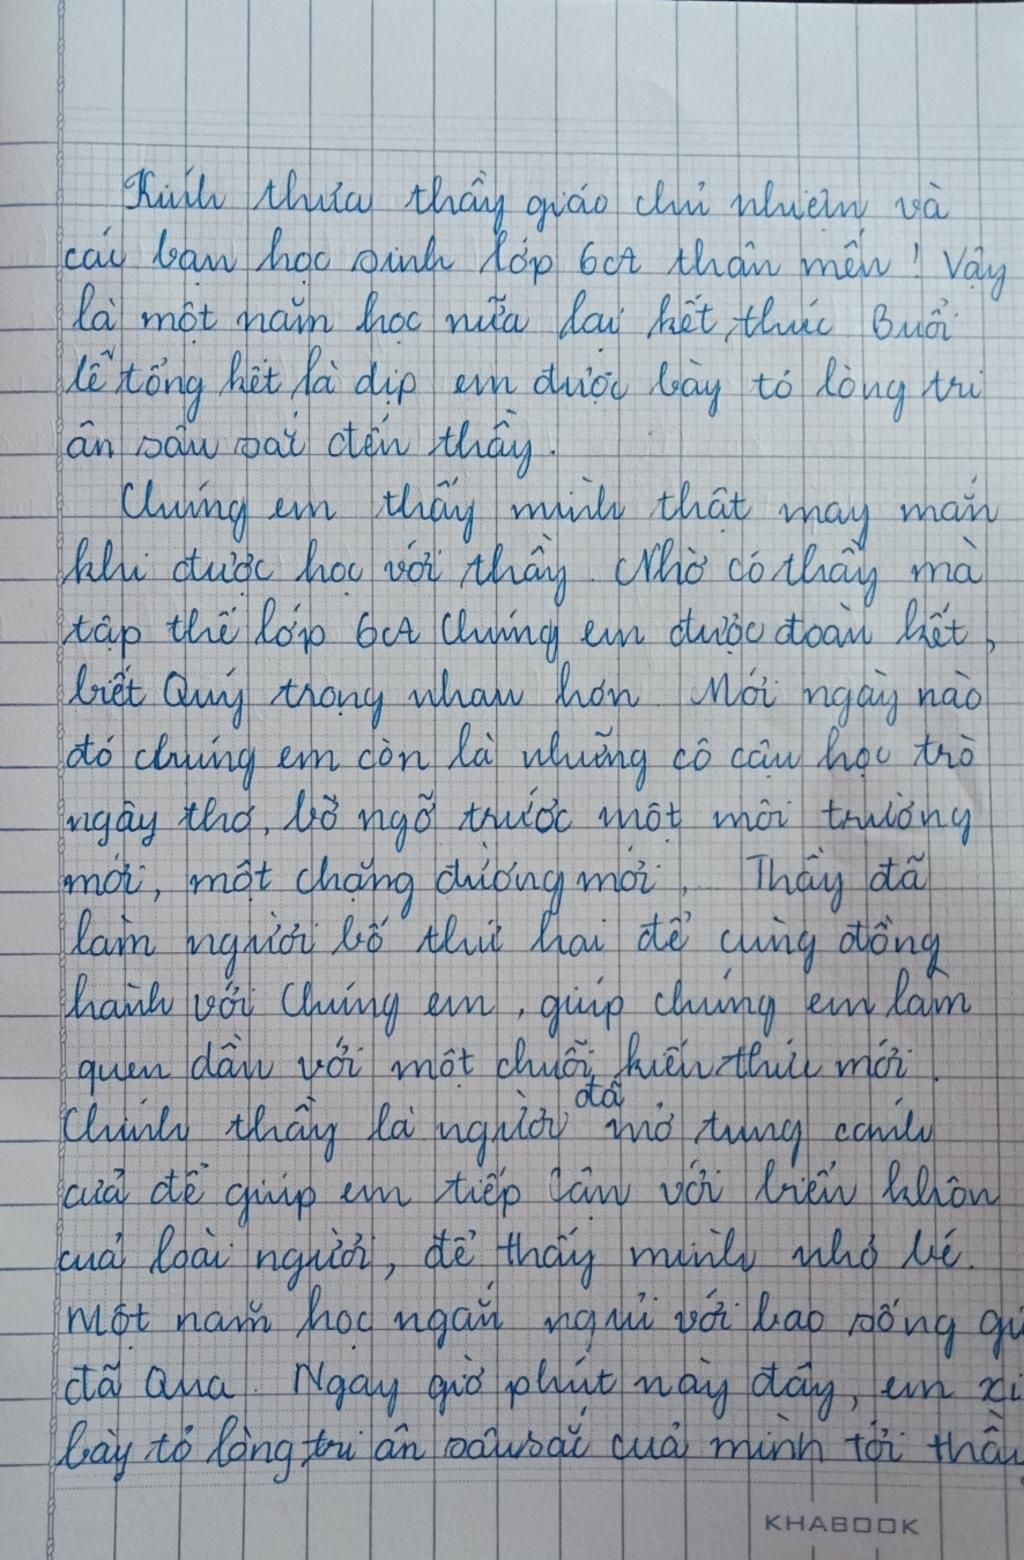 Kính thưa thầy giáo chủ nhiệm và
các bạn học sinh lớp 6A thân mến! Vậy
là một năm học nữa lại kết thúc Buổi
lễ tổng kết là dịp em được bày tỏ lòng tri
ân sâu sắc đến thầy.
Chúng em thấy mình thật may mắn
khi được học với thầy. Nhờ có thầy mà
tập thể lớp 6A Chúng em được đoàn kết,
biết Quý trọng nhau hơn Mới ngày nào
đó chúng em còn là những cô cậu học trò
ngây thơ, bỡ ngỡ trước một môi trường
mới, một chặng đường mới, Thầy đã
làm người bố thứ hai để cùng đồng
hành với Chúng em, giúp chúng em làm
quen dần với một chuỗi kiến thức mới.
Chính thầy là người đã mở tung cánh
cửa để giúp em tiếp cận với biển khôn
của loài người, để thấy mình nhỏ bé.
Một năm học ngắn ngủi với bao sóng
đã Qua. Ngay giờ phút này đây, em
bày tỏ lòng tri ân sâu sắc của mình tới thầy
KHABOOK